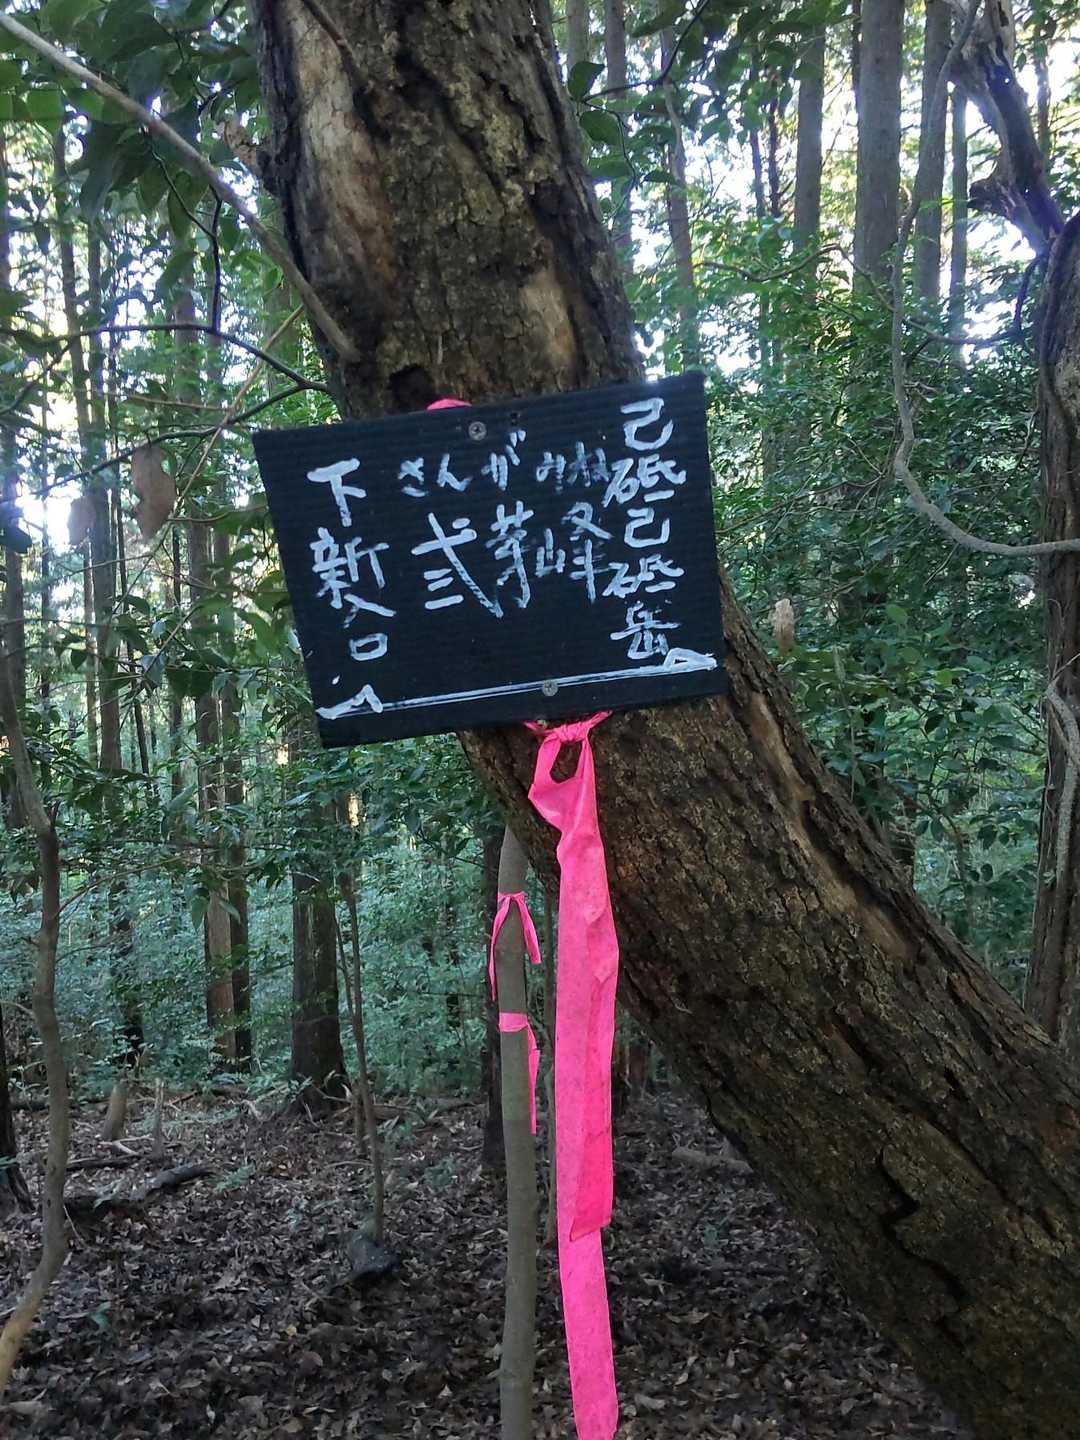 己砥己砥岳
さんがみね
弎芽峰
下新入口